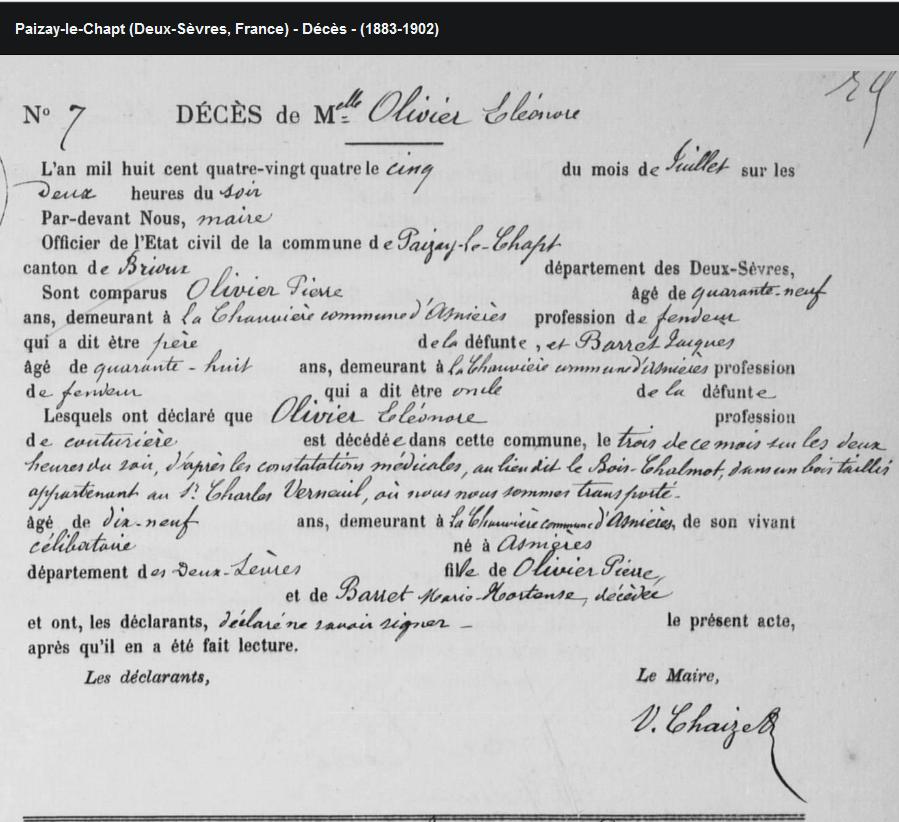 Paizay-le-Chapt (Deux-Sèvres, France) - Décès - (1883-1902)
29
No 7 DÉCÈS de Melle Olivier Eléonore
L'an mil huit cent quatre-vingt quatre le cinq du mois de Juillet sur les
deux heures du soir
Par-devant Nous, maire
Officier de l'Etat civil de la commune de Paizay-le-Chapt
canton de Brioux département des Deux-Sèvres,
Sont comparus Olivier Pierre âgé de quarante-neuf
ans, demeurant à la Chauvière commune d'Asnières profession de fendeur
qui a dit être père de la défunte, et Barret Jacques
âgé de quarante-huit ans, demeurant à la Chauvière commune d'Asnières profession
de fendeur qui a dit être oncle de la défunte
Lesquels ont déclaré que Olivier Eléonore profession
de couturière est décédée dans cette commune, le trois de ce mois sur les deux
heures du soir, d'après les constatations médicales, au lieu dit le Bois-Chalmot, dans un bois taillis
appartenant au Sr. Charles Verneuil, où nous nous sommes transporté.
âgé de dix-neuf ans, demeurant à la Chauvière commune d'Asnières, de son vivant
célibataire né à Asnières
département des Deux-Sèvres fille de Olivier Pierre,
et de Barret Marie-Hortense, décédée
et ont, les déclarants, déclaré ne savoir signer - le présent acte,
après qu'il en a été fait lecture.
Les déclarants, Le Maire,
V. Chaize